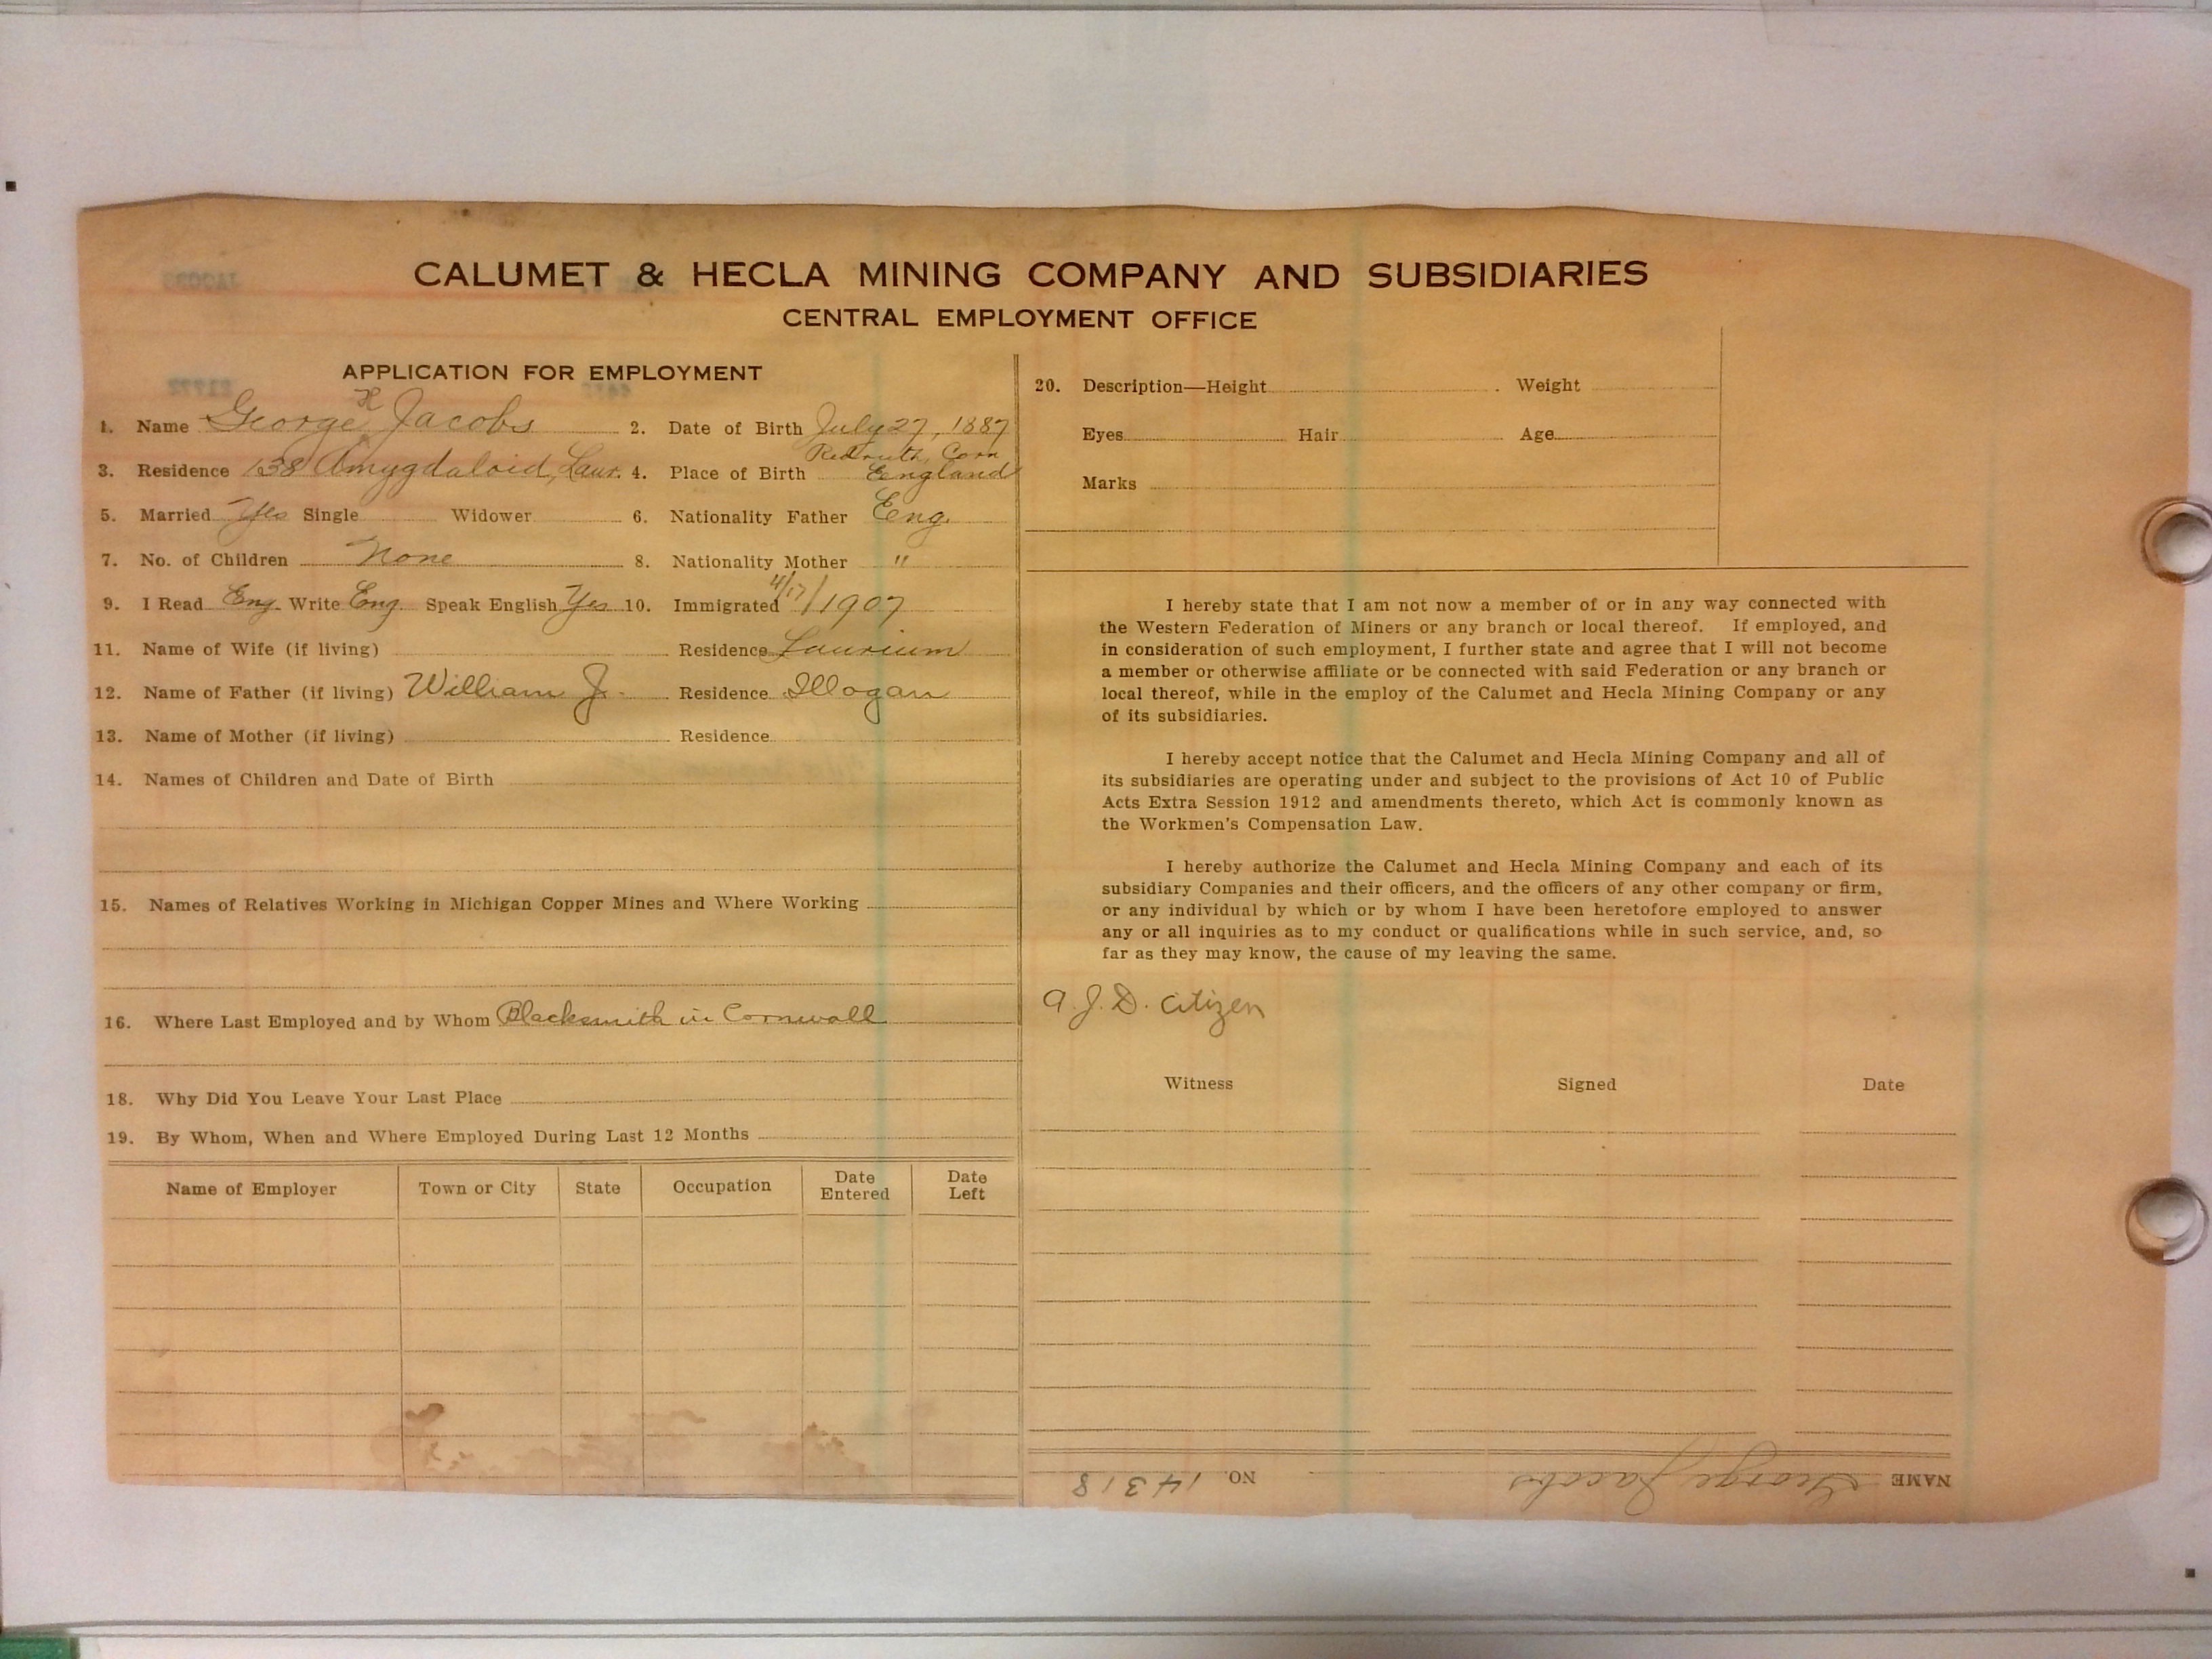 CALUMET & HECLA MINING COMPANY AND SUBSIDIARIES
CENTRAL EMPLOYMENT OFFICE
APPLICATION FOR EMPLOYMENT
1. Name George H Jacobs 2. Date of Birth July 27, 1887
3. Residence 138 Amygdaloid, Laur. 4. Place of Birth Redruth, Corn England
5. Married Yes Single Widower 6. Nationality Father Eng.
7. No. of Children None 8. Nationality Mother "
9. I Read Eng. Write Eng. Speak English Yes 10. Immigrated 4/17/1907
11. Name of Wife (if living) Residence Laurium
12. Name of Father (if living) William J. Residence Illogan
13. Name of Mother (if living) Residence
14. Names of Children and Date of Birth
15. Names of Relatives Working in Michigan Copper Mines and Where Working
16. Where Last Employed and by Whom Blacksmith in Cornwall
18. Why Did You Leave Your Last Place
19. By Whom, When and Where Employed During Last 12 Months
Name of Employer Town or City State Occupation Date Entered Date Left
20. Description—Height Weight
Eyes Hair Age
Marks
I hereby state that I am not now a member of or in any way connected with
the Western Federation of Miners or any branch or local thereof. If employed, and
in consideration of such employment, I further state and agree that I will not become
a member or otherwise affiliate or be connected with said Federation or any branch or
local thereof, while in the employ of the Calumet and Hecla Mining Company or any
of its subsidiaries.
I hereby accept notice that the Calumet and Hecla Mining Company and all of
its subsidiaries are operating under and subject to the provisions of Act 10 of Public
Acts Extra Session 1912 and amendments thereto, which Act is commonly known as
the Workmen's Compensation Law.
I hereby authorize the Calumet and Hecla Mining Company and each of its
subsidiary Companies and their officers, and the officers of any other company or firm,
or any individual by which or by whom I have been heretofore employed to answer
any or all inquiries as to my conduct or qualifications while in such service, and, so
far as they may know, the cause of my leaving the same.
a. J. D. citizen
Witness Signed Date
NAME George Jacobs NO. 14318